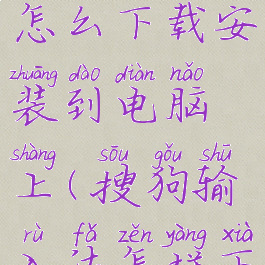 怎么下载安
zhuāng dào diàn nǎo
装到电脑
shàng sōu gǒu shū
上（搜狗输
rù fǎ zěn yàng xià
入法怎样下